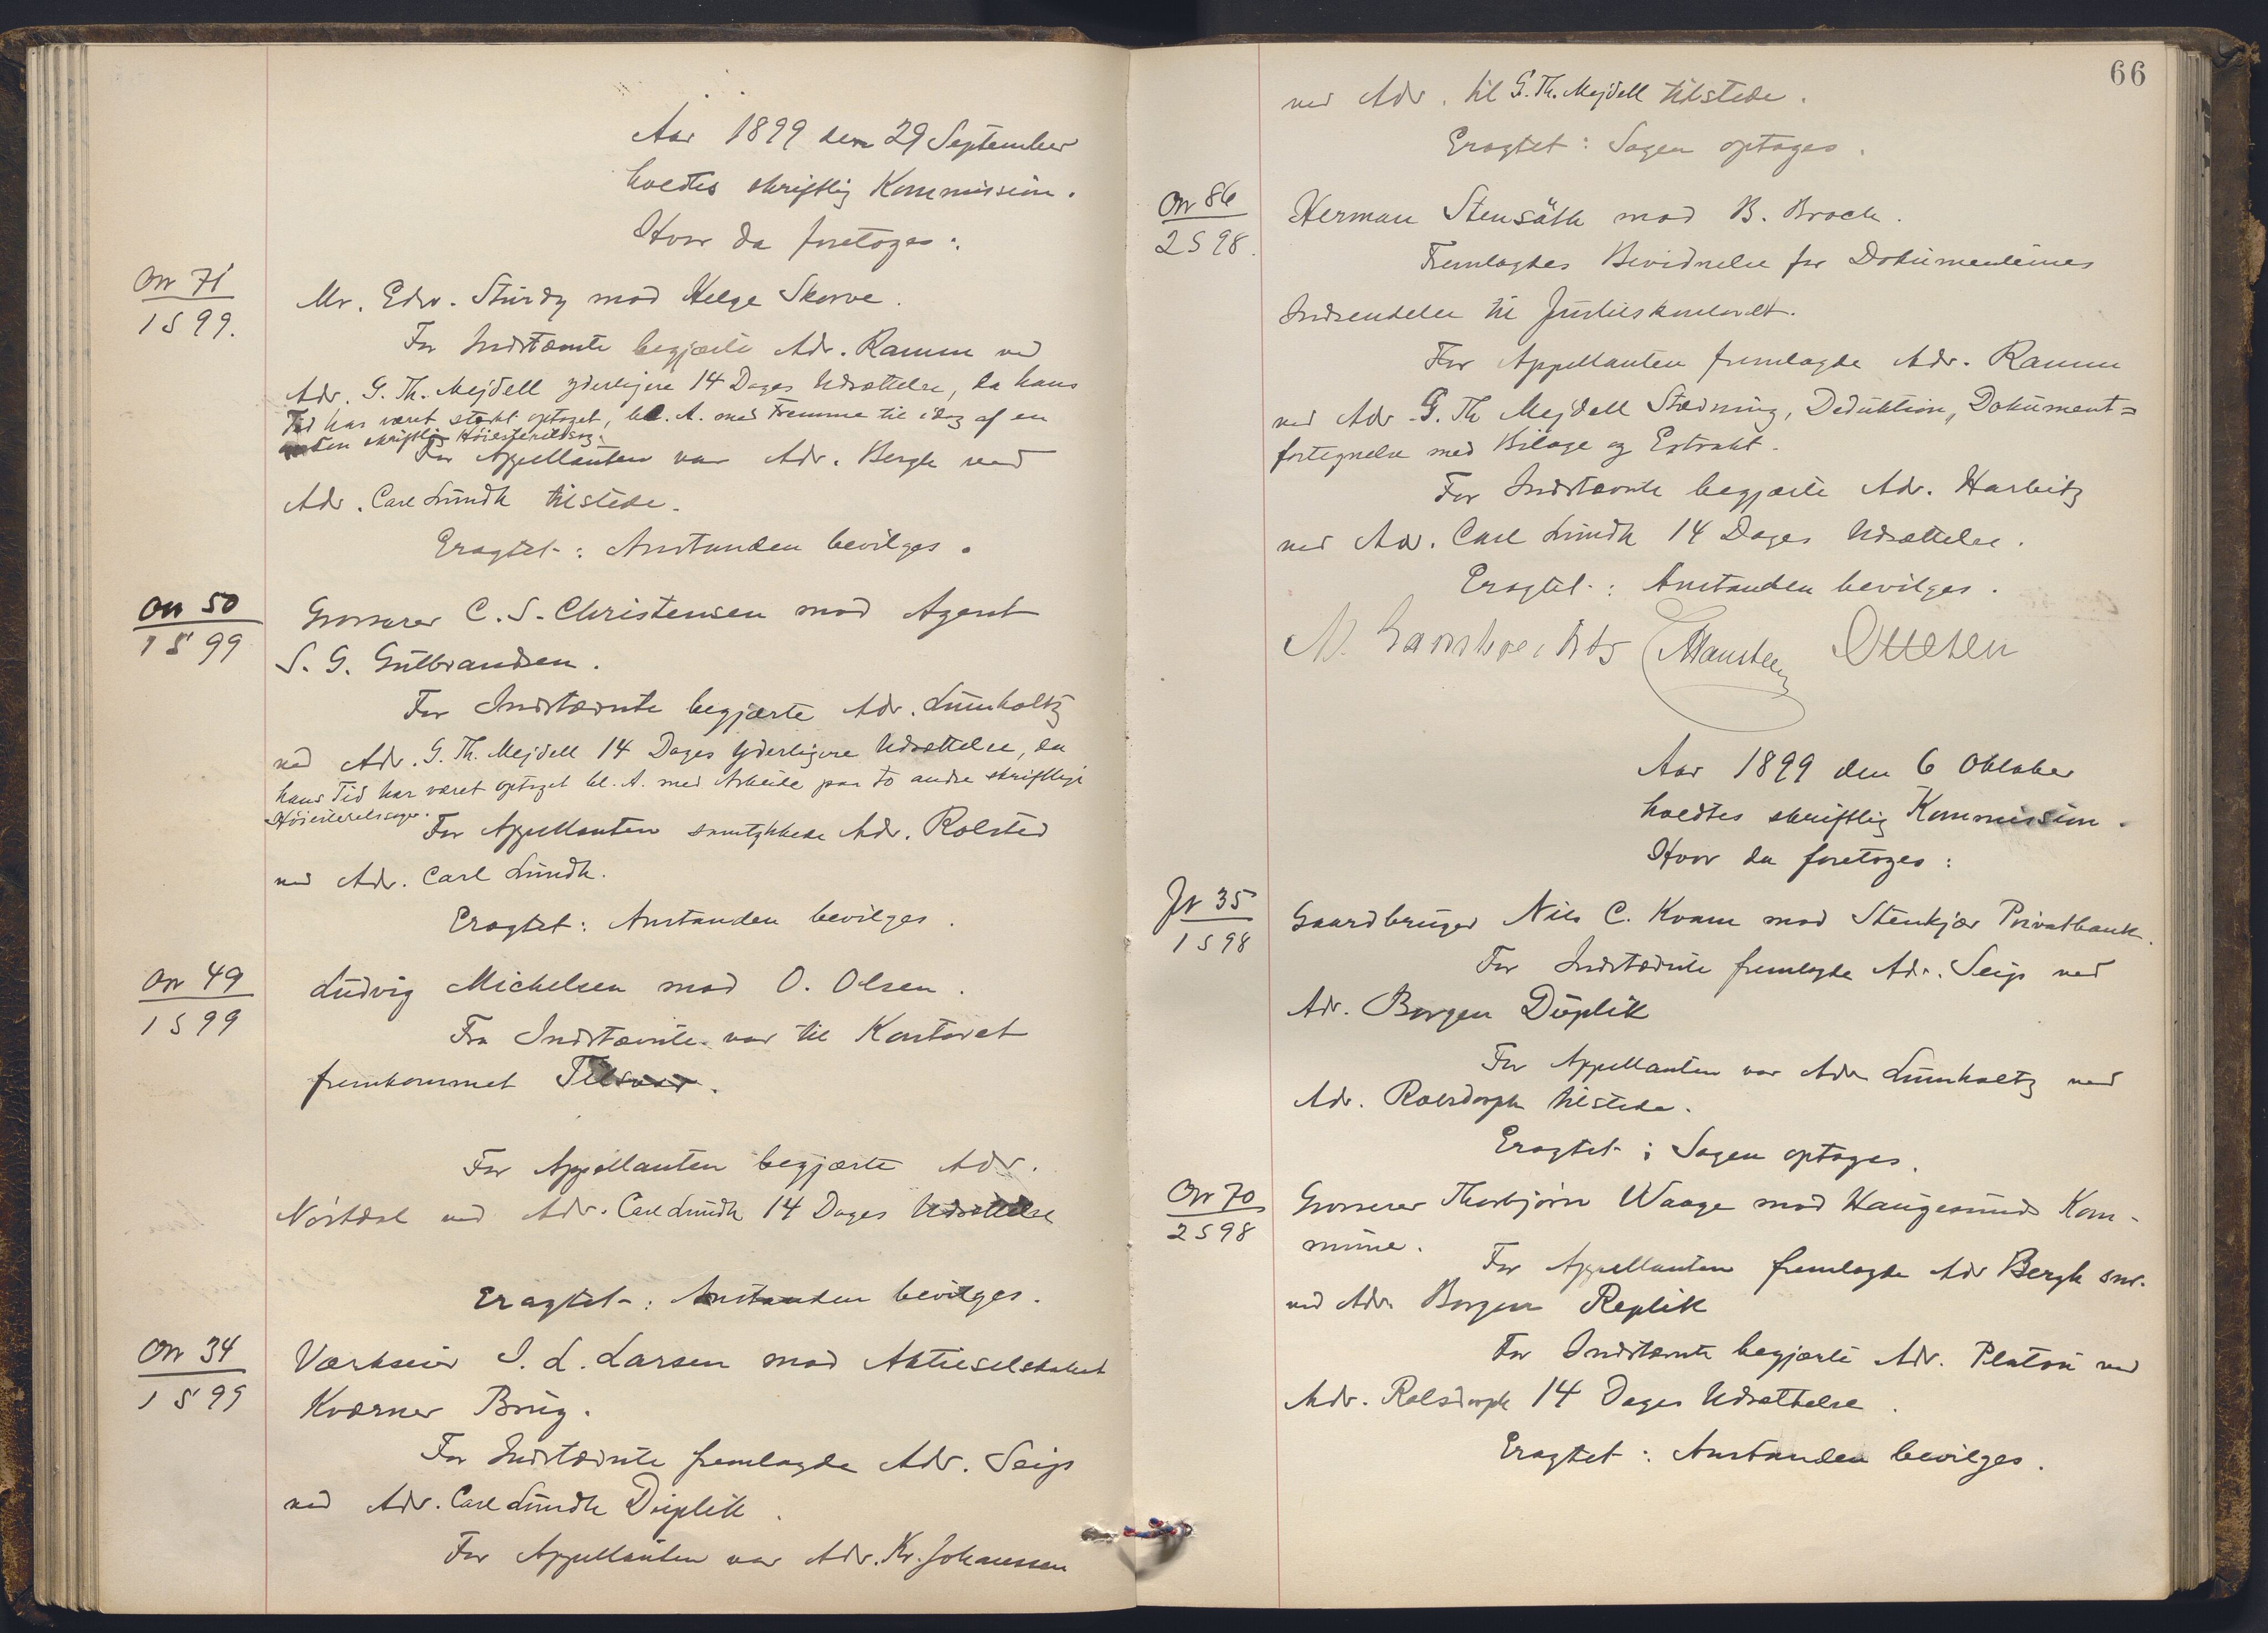 Aar 1899 den 29 September
holdtes skriftlig Kommission.
Hvor da foretoges:
Nr 71
1 S 99.
Mr. Edw. Sturdy mod Helge Skorve.
For Indstævnte begjærte Adv. Ramm ved
Adv. G. Th. Mejdell yderligere 14 Dages Udsættelse, da hans
Tid har været stærkt optaget, bl. A. med Fremme til idag af en
anden skriftlig Höiesteretssag.
For Appellanten var Adv. Bergh ved
Adv. Carl Lundh tilstede.
Eragtet: Anstanden bevilges.
Nr 50
1 S 99
Grosserer C. S. Christensen mod Agent
S. G. Gulbrandsen.
For Indstævnte begjærte Adv. Lumholtz
ved Adv. G. Th. Mejdell 14 Dages yderligere Udsættelse, da
hans Tid har været optaget bl. A. med Arbeide paa to andre skriftlige
Höiesteretssager.
For Appellanten samtykkede Adv. Rolsted
ved Adv. Carl Lundh.
Eragtet: Anstanden bevilges.
Nr 49
1 S 99
Ludvig Michelsen mod O. Olsen.
Fra Indstævnte var til Kontoret
fremkommet Tilsvar.
For Appellanten begjærte Adv.
Nörtdal ved Adv. Carl Lundh 14 Dages Udsættelse
Eragtet: Anstanden bevilges.
Nr 34
1 S 99
Værkseier I. L. Larsen mod Aktieselskabet
Kværner Brug.
For Indstævnte fremlagde Adv. Seip
ved Adv. Carl Lundh Duplik.
For Appellanten var Adv. Kr. Johanssen
66
ved Adv. til G. Th. Mejdell tilstede.
Eragtet: Sagen optages.
Nr 86
2 S 98.
Herman Stensäth mod B. Brock.
Fremlagdes Bevidnelse for Dokumenternes
Indsendelse til Justitskontoret.
For Appellanten fremlagde Adv. Ramm
ved Adv G. Th Mejdell Stævning, Deduktion, Dokument=
fortegnelse med Bilage og Extrakt.
For Indstævnte begjærte Adv. Harbitz
ved Adv. Carl Lundh 14 Dages Udsættelse.
Eragtet: Anstanden bevilges.
Hansteen Ottesen
Aar 1899 den 6 Oktober
holdtes skriftlig Kommission.
Hvor da foretoges:
Nr 35
1 S 98
Gaardbruger Nils C. Kvam mod Stenkjær Privatbank.
For Indstævnte fremlagde Adv. Seip ved
Adv. Borgen Duplik
For Appellanten var Adv Lumholtz ved
Adv. Rolsdorph tilstede.
Eragtet: Sagen optages.
Nr 70
2 S 98
Grosserer Thorbjørn Waage mod Haugesunds Kom-
mune.
For Appellanten fremlagde Adv Bergh snr.
ved Adv Borgen Replik
For Indstævnte begjærte Adv. Platou ved
Adv. Rolsdorph 14 Dages Udsættelse.
Eragtet: Anstanden bevilges.